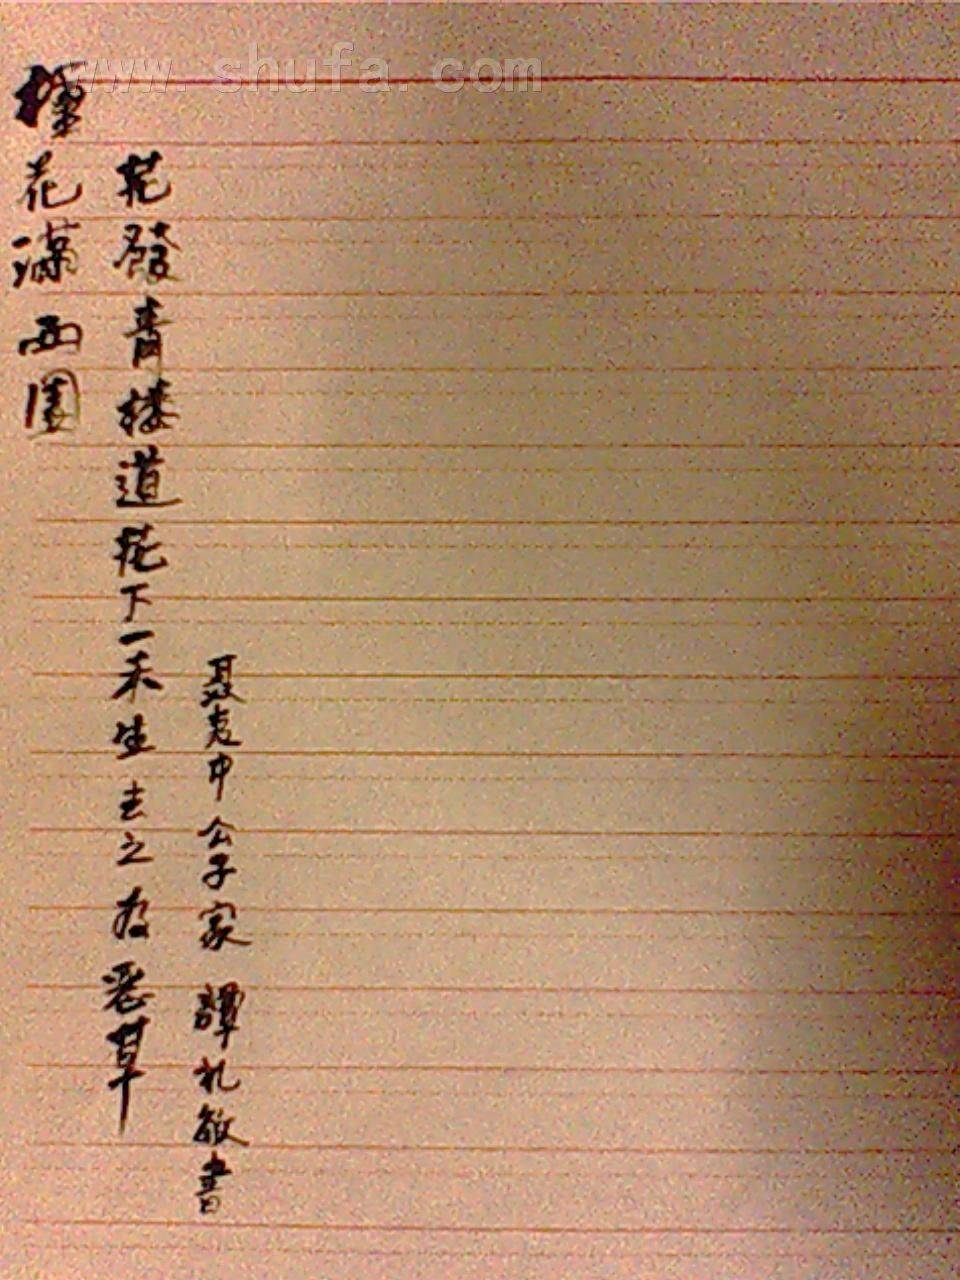 www.shufa.com
種花滿西園
花發青樓道花下一禾生去之為惡草
聶夷中公子家 譚礼敏書